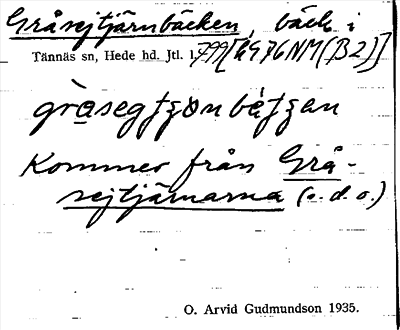 Gråsejtjärnbäcken, bäck i
Tännäs sn, Hede hd. Jtl. l. 799 [G76NM(B2)]
Kommer från Grå-
sejtjärnarna (s. d. o.)
O. Arvid Gudmundson 1935.